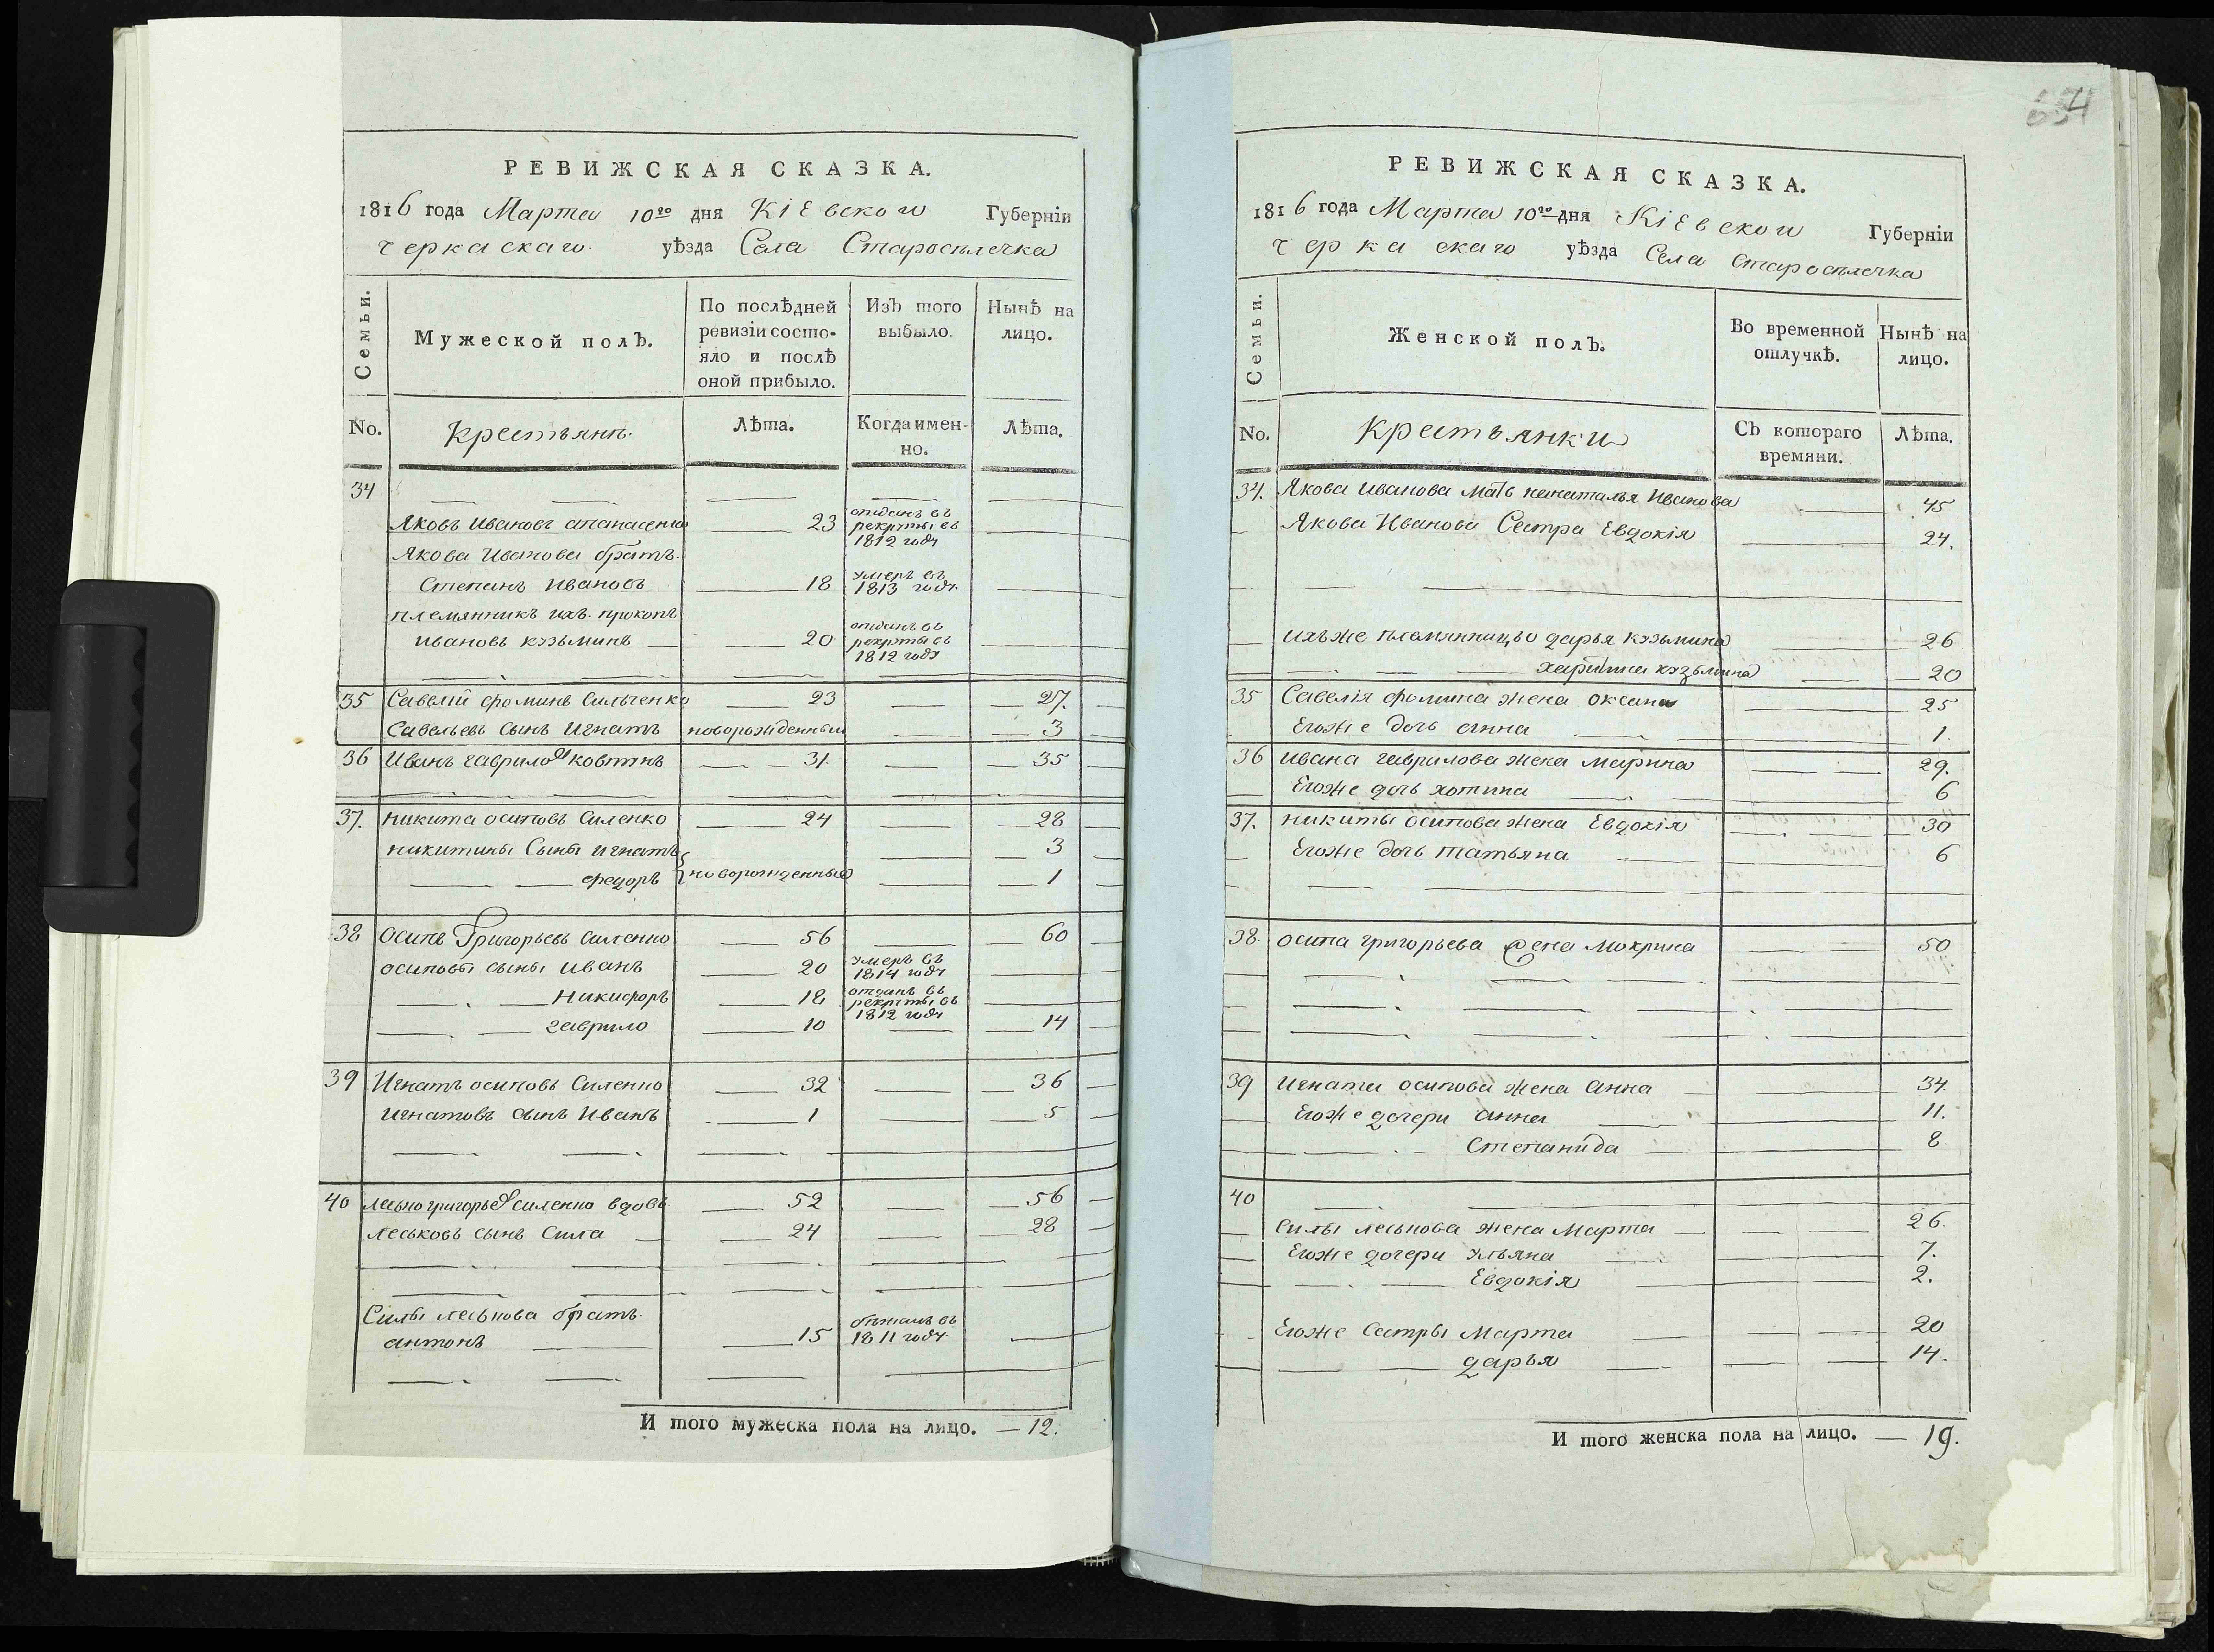 РЕВИЖСКАЯ СКАЗКА.
1816 года Марта 10го дня Кіевской Губерніи
черкаскаго уѣзда Села Староселечка
Семьи.
Мужеской полЪ.
По послѣдней ревизіи состо-
яло и послѣ
оной прибыло.
ИзЪ того
выбыло.
Нынѣ на
лицо.
No.
Крестьянъ.
Лѣта.
Когда имен-
но.
Лѣта.
34
Яковъ Ивановъ апанасенко 23 отданъ въ рекруты въ 1812 году
Якова Иванова братъ
Степанъ Ивановъ 18 умеръ въ 1813 году
племянникъ ихъ прокопъ
ивановъ кузьминъ 20 отданъ въ рекруты въ 1812 году
35 Савелій фоминъ Сильченко 23 27.
Савельевъ сынъ Игнатъ новорожденный 3
36 Иванъ гаврилов ковтунъ 31 35
37. никита осиповъ Силенко 24 28
никитины Сыны игнатъ 3
федоръ новорожденные 1
38 Осипъ Григорьевъ Силенко 56 60
осиповы сыны иванъ 20 умеръ въ 1814 году
Никифоръ 18 отданъ въ рекруты въ 1812 году
гаврило 10 14
39 Игнатъ осиповъ Силенко 32 36
Игнатовъ сынъ Иванъ 1 5
40 леско григорьев силенко вдовъ 52 56
леськовъ сынъ Сила 24 28
Силы леськова братъ
антонъ 15 бѣжалъ въ 1811 году
И того мужеска пола на лицо. — 12.
РЕВИЖСКАЯ СКАЗКА.
1816 года Марта 10го дня Кіевской Губерніи
черкаскаго уѣзда Села Староселечка
Семьи.
Женской полЪ.
Во временной
отлучкѣ.
Нынѣ на
лицо.
No.
Крестьянки
СЪ котораго
времяни.
Лѣта.
34. Якова Иванова мать Ивановa 45
Якова Иванова Сестра Евдокія 24.
ихъже племянницы дарья кузьмина 26
харитина кузьмина 20
35 Савелія фомина жена оксана 25
Егоже дочь анна 1.
36 ивана гаврилова жена марина 29.
Егоже дочь хотина 6
37. никиты осипова жена Евдокія 30
Егоже дочь татьяна 6
38. осипа григорьева жена мокрина 50
39 игната осипова жена анна 34.
Егоже дочери анна 11.
Степанида 8
40
силы леськова жена Марта 26.
Егоже дочери ульяна 7.
Евдокія 2.
Егоже сестры Марта 20
дарья 14.
И того женска пола на лицо. — 19.